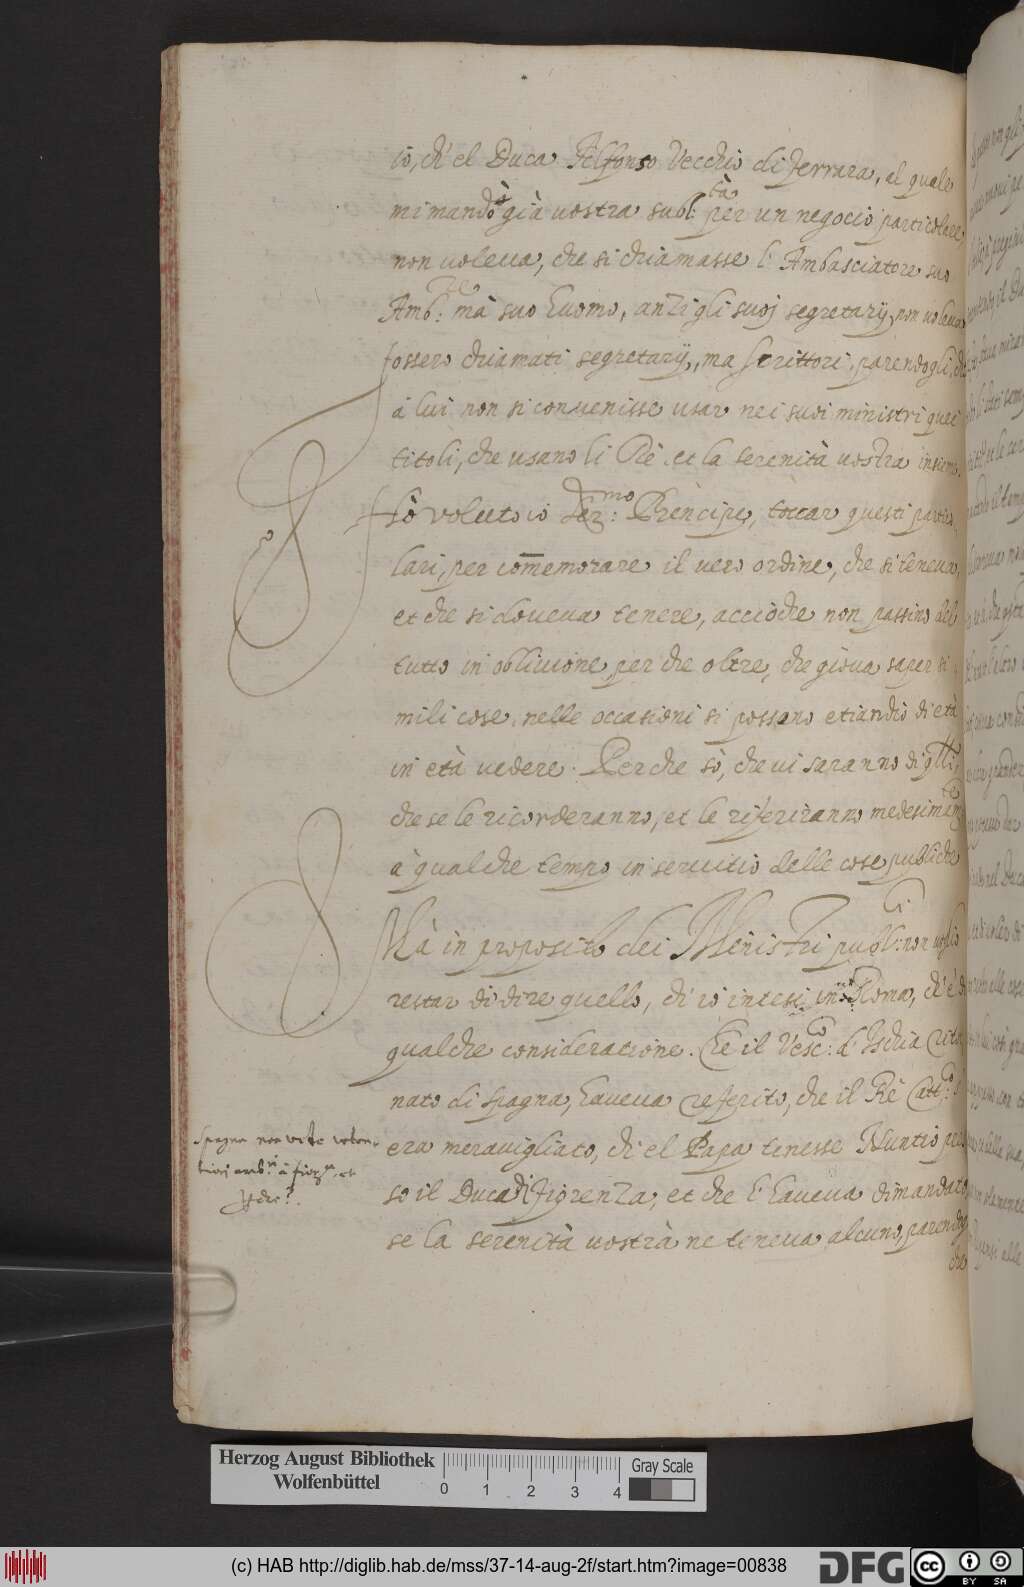 io, ch'el Duca Alfonso Vecchio di Ferrara, al quale
mi mandò già vostra subl:tà per un negocio particolare,
non uoleua, che si chiamasse l'Ambasciatore suo
Amb:re mà suo huomo, anzi gli suoj segretarij, non uoleua
fossero chiamati segretarij, ma scrittori, parendogli, ch
à lui non si conuenisse usar nei suoi ministri quei
titoli, che usano li Rè, et la serenità uostra insieme.
Hò voluto io Ser:mo Prencipe, toccar questi partico
lari, per comemorare il uero ordine, che si teneua,
et che si doueua tenere, acciòche non passino del
tutto in obliuione, per che oltre, che gioua saper si
mili cose, nelle occasioni si possono etiandio di età
in età uedere. Perche sò, che ui saranno di qlli,
che se le ricorderanno, et le riferiranno medesimamte
à qualche tempo in seruitio delle cose publiche
Mà in proposito dei Ministri publ:ci non uoglio
restar di dire quello, ch'io intesi in Roma, ch'è di
qualche consideratione. Che il Vesc:o d'Ischia ritor
nato di Spagna, haueua referito, che il Rè Catt:co si
era merauigliato, ch'el Papa tenesse Nuntio pres
so il Duca di Fiorenza, et che l'haueua dimandato
se la serenità uostra ne teneua alcuno, parendo
che
Spagna non
à Fior:a et
Herzog August Bibliothek
Wolfenbüttel
0 1 2 3 4
Gray Scale
(c) HAB http://diglib.hab.de/mss/37-14-aug-2f/start.htm?image=00838
DFG
cc BY SA